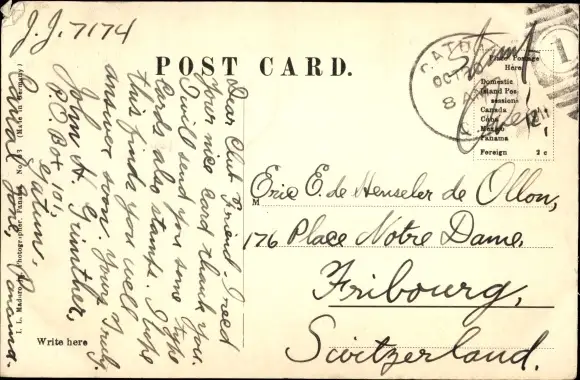 J.J. 7174
POST CARD.
Dear Club Friend. I recd
Your nice card thank you.
I will send you some type
Cards also stamps. I hope
this finds you well
answer soon. Yours Truly.
John H. Grimther,
P.O. Box 101,
Gatun.
Canal Zone, Panama.
I. L. Maduro Jr. Photographer, Panama No. (Made in Germany)
Write here
GATUN
OCT 20
8 AM
C.
1
Stamp
Over
Place Postage
Here.
Domestic
Island Pos
sessions
Canada
Cuba
Mexico
Panama
Foreign 2 c
M
Eric E. de Henseler de Ollon,
176 Place Notre Dame,
Fribourg,
Switzerland.